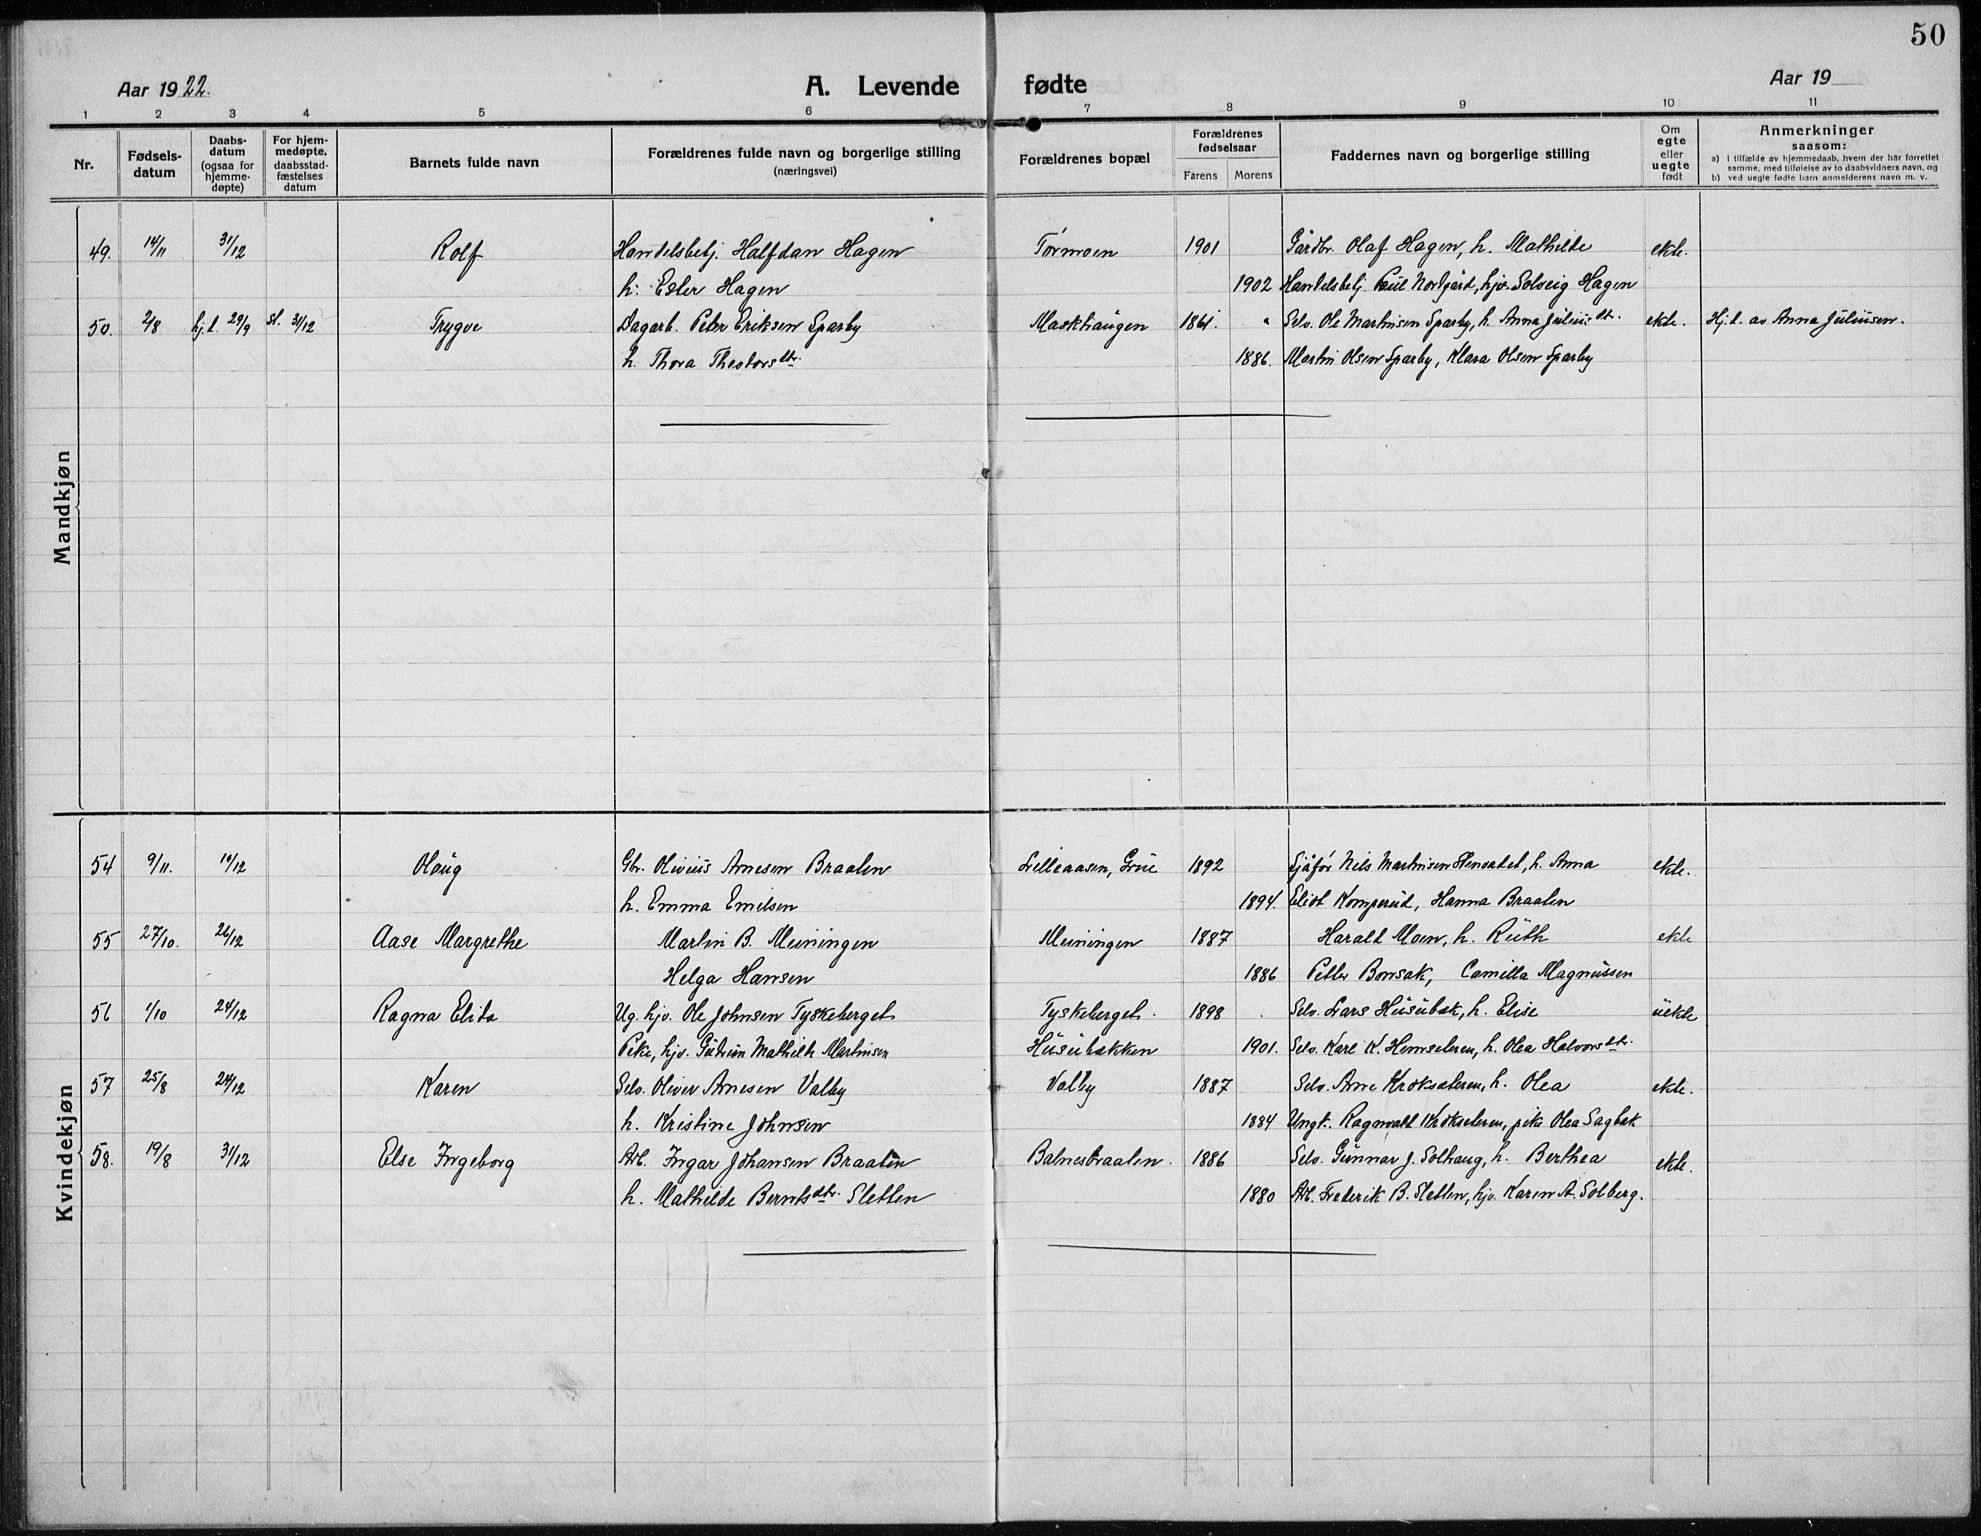 50
Aar 1922.
A. Levende fødte
Aar 19
1 2 3 4 5 6 7 8 9 10 11
Nr.
Fødselsdatum
Daabsdatum (ogsaa for hjemmedøpte)
For hjemmedøpte, daabsstadfæstelses datum
Barnets fulde navn
Forældrenes fulde navn og borgerlige stilling (næringsvei)
Forældrenes bopæl
Forældrenes fødselsaar
Farens Morens
Faddernes navn og borgerlige stilling
Om egte eller uegte født
Anmerkninger saasom:
a) I tilfælde av hjemmedaab, hvem der har forrettet samme, med tilføielse av to daabsvidners navn, og
b) ved uegte fødte barn anmelderens navn m. v.
Mandkjøn
49. 14/11 31/12 Rolf Handelsbetj. Halfdan Hagen Tørmoen 1901 Gårdbr. Olaf Hagen, h. Mathilde ekte.
h. Ester Hagen 1902 Handelsbetj. Paul Nordgård, hjv. Solveig Hagen
50. 2/8 hj.d. 29/9 st. 31/12 Trygve Dagarb. Peter Eriksen Sparby Maskhaugen 1861. Selv. Ole Martinsen Sparby, h. Anna Juliusdtr. ekte. Hj.d. av Anna Juliusen.
h. Thora Thestorsdtr. 1886. Martin Olsen Sparby, Klara Olsen Sparby
Kvindekjøn
54 9/11. 10/12 Olaug Gbr. Olivius Arnesen Braaten Lilleaasen, Grue 1892 Sjåfør Nils Martinsen Henvadet, h. Anna ekte.
h. Emma Emilsen 1894. Eliot Komperud, Hanna Braaten
55 27/10. 26/12 Aase Margrethe Martin B. Meiningen Meiningen 1887 Harald Moen, h. Ruth ekte
Helga Hansen 1886 Petter Bonsak, Camilla Magnussen
56 1/10 24/12 Ragna Elida Ug. hjv. Ole Johnsen Tyskeberget Tyskeberget. 1898 Selv. Lars Husubæk, h. Elise uekte
Pike, hjv. Gudrun Mathilde Martinsen Husubækken 1901. Selv. Karl K. Hemseteren, h. Olea Halvorsdtr.
57 25/8 24/12 Karen Selv. Oliver Arnesen Valby Valby 1887 Selv. Arne Kroksæteren, h. Olea ekte.
h. Kristine Johnsen 1884 Ungk. Ragnvald Krokseteren, pike Olea Sagbak
58. 19/8 31/12 Else Ingeborg Arb. Ingar Johansen Braaten Balnesbraaten. 1886 Selv. Gunnar J. Solhaug, h. Berthea ekte.
h. Mathilde Berntsdtr. Sletten 1880 Arb. Frederik B. Sletten, hjv. Karen A. Solberg.